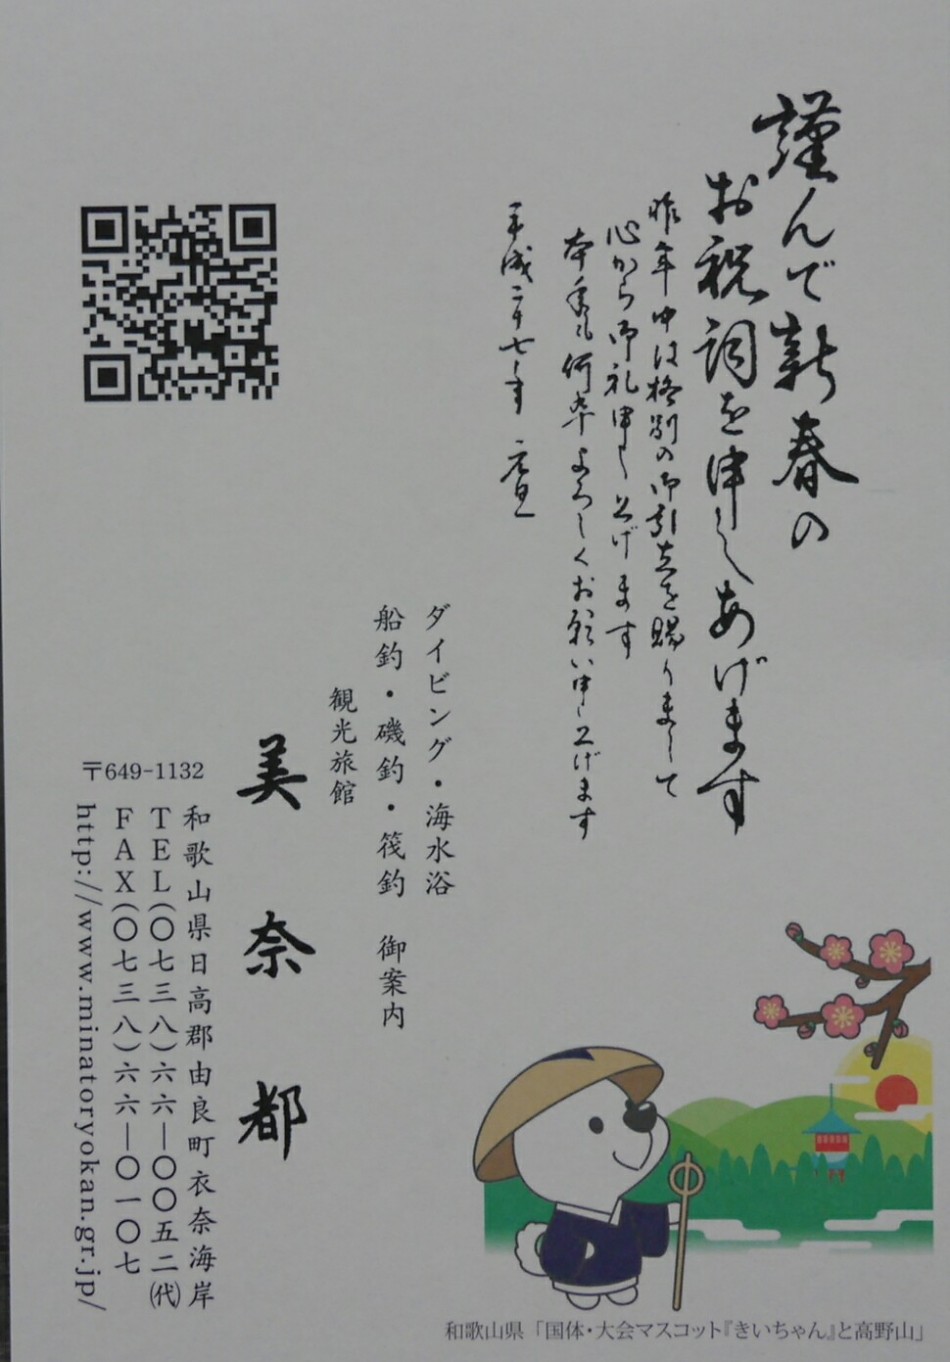 謹んで新春の
お祝詞を申しあげます
昨年中は格別の御引立を賜りまして
心から御礼申し上げます
本年も何卒よろしくお願い申し上げます
平成二十七年 元旦
ダイビング・海水浴
船釣・磯釣・筏釣 御案内
観光旅館
美奈都
〒649-1132
和歌山県日高郡由良町衣奈海岸
TEL(〇七三八)六六―〇〇五二(代)
FAX(〇七三八)六六―〇一〇七
http://www.minatoryokan.gr.jp/
和歌山県「国体・大会マスコット『きいちゃん』と高野山」